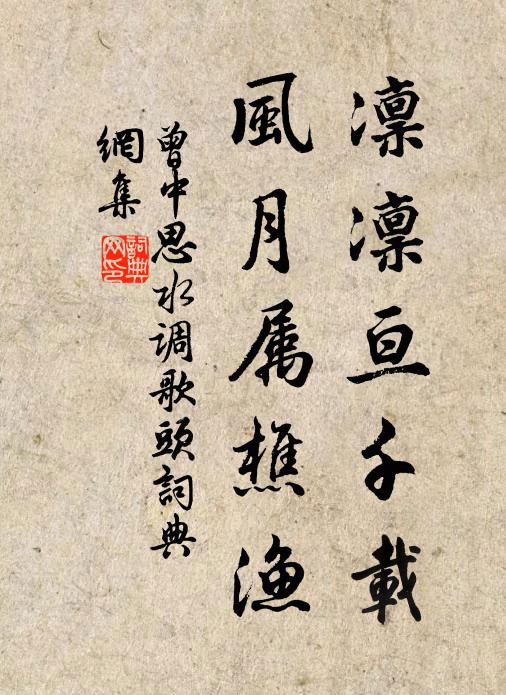 凛凛亘千載
風月属樵漁
曾中思水调歌頭詞典
網集
詞典网印